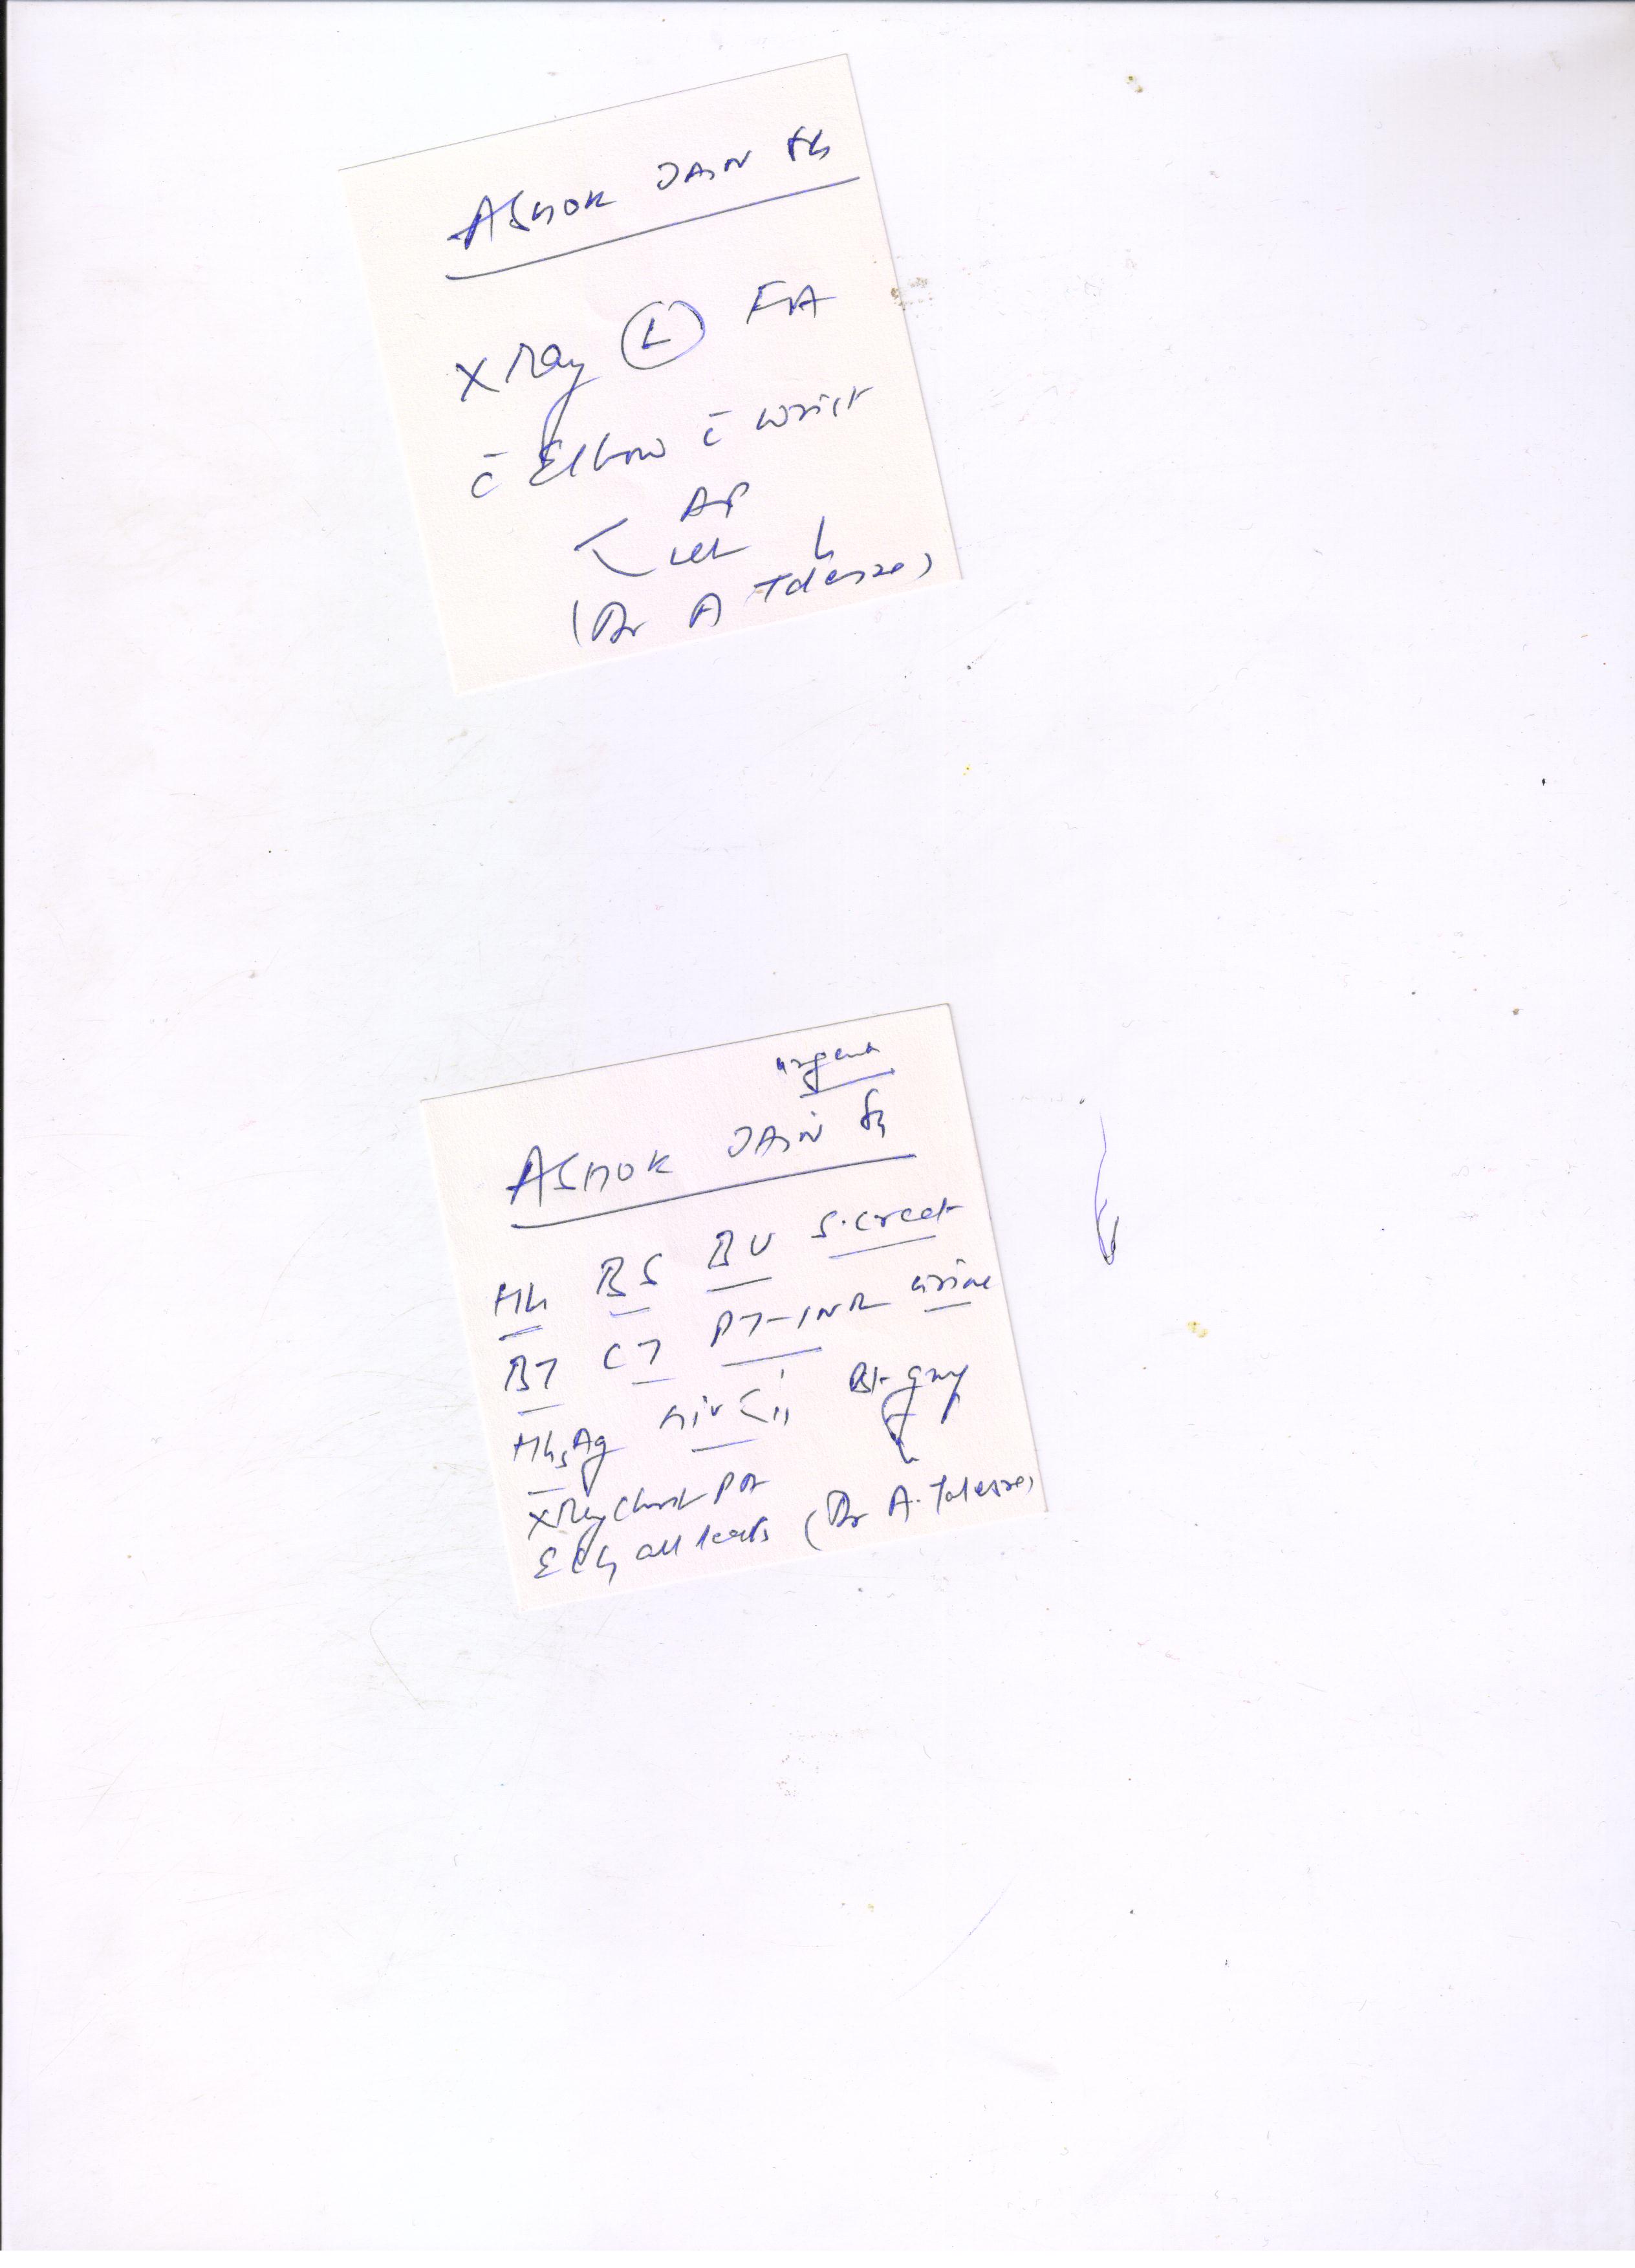 ASHOK JAIN
X Ray (L) F/A
c̄ Elbow c̄ wrist
AP
Lat
(Dr A
urgent
ASHOK JAIN
Hb BS BU S.creat
BT CT PT-INR urine
HbsAg HIV < i ii Bl. group
X Ray Chest PA
ECG all leads (Dr A.